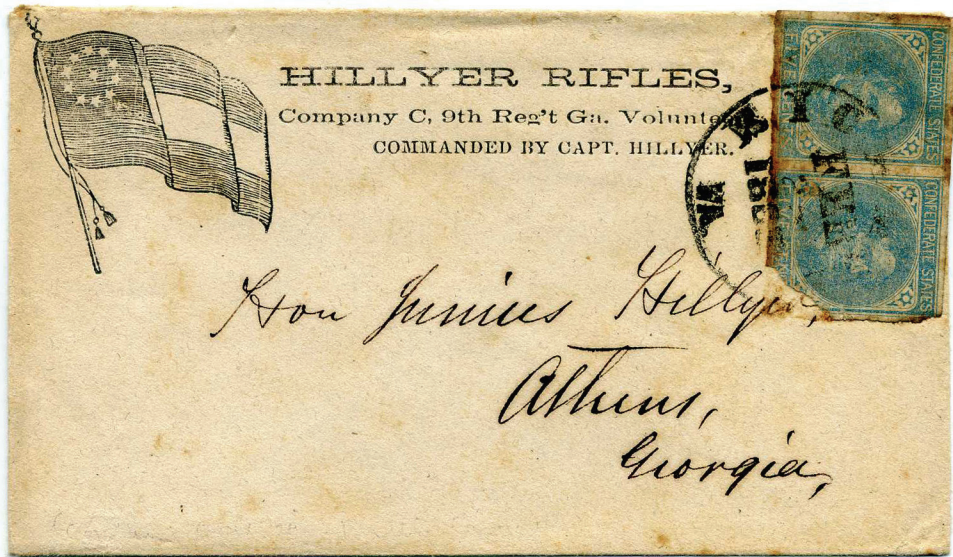 HILLYER RIFLES,
Company C, 9th Reg't Ga.
COMMANDED BY CAPT. HILLYER.
CONFEDERATE STATES
CONFEDERATE STATES
RICH
VA
Hon Junius Hillyer,
Athens,
Georgia,